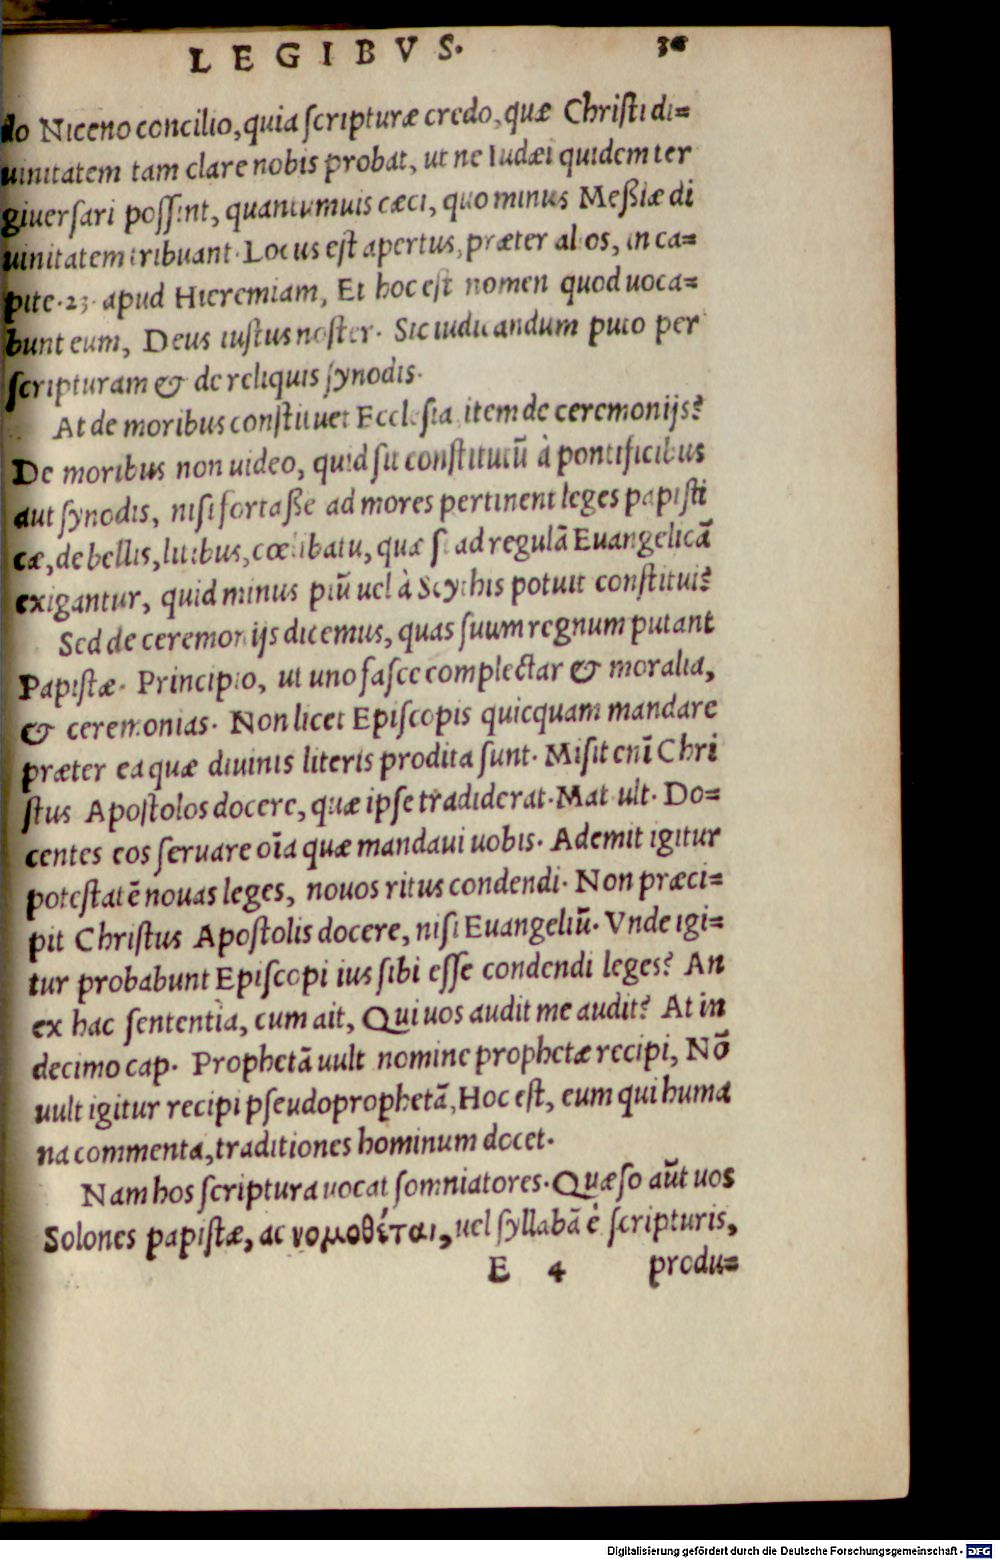 LEGIBVS.
do Niceno concilio, quia ſcripturæ credo, quæ Chriſti di=
uinitatem tam clare nobis probat, ut ne Iudæi quidem ter
giuerſari poſſint, quantumuis cæci, quo minus Meßiæ di
uinitatem tribuant. Locus eſt apertus, præter alios, in ca=
pite. 23. apud Hieremiam, Et hoc eſt nomen quod uoca=
bunt eum, Deus iuſtus noſter. Sic iudicandum puto per
ſcripturam & de reliquis ſynodis.
At de moribus conſtituet Eccleſia, item de ceremonijs?
De moribus non uideo, quid ſit conſtitutū à pontificibus
aut ſynodis, niſi fortaße ad mores pertinent leges papiſti
cæ, de bellis, litibus, cœlibatu, quæ ſi ad regulā Euangelicā
exigantur, quid minus piū uel à Scythis potuit conſtitui?
Sed de ceremonijs dicemus, quas ſuum regnum putant
Papiſtæ. Principio, ut uno faſce complectar & moralia,
& ceremonias. Non licet Epiſcopis quicquam mandare
præter ea quæ diuinis literis prodita ſunt. Miſit enī Chri
ſtus Apoſtolos docere, quæ ipſe tradiderat. Mat ult. Do=
centes eos ſeruare oīa quæ mandaui uobis. Ademit igitur
poteſtatē nouas leges, nouos ritus condendi. Non præci=
pit Chriſtus Apoſtolis docere, niſi Euangeliū. Vnde igi=
tur probabunt Epiſcopi ius ſibi eſſe condendi leges? An
ex hac ſententia, cum ait, Qui uos audit me audit? At in
decimo cap. Prophetā uult nomine prophetæ recipi, Nō
uult igitur recipi pſeudoprophetā, Hoc eſt, eum qui huma
na commenta, traditiones hominum docet.
Nam hos ſcriptura uocat ſomniatores. Quæſo aūt uos
Solones papiſtæ, ac νομοθέται, uel ſyllabā è ſcripturis,
E 4 produ=
Digitalisierung gefördert durch die Deutsche Forschungsgemeinschaft - DFG